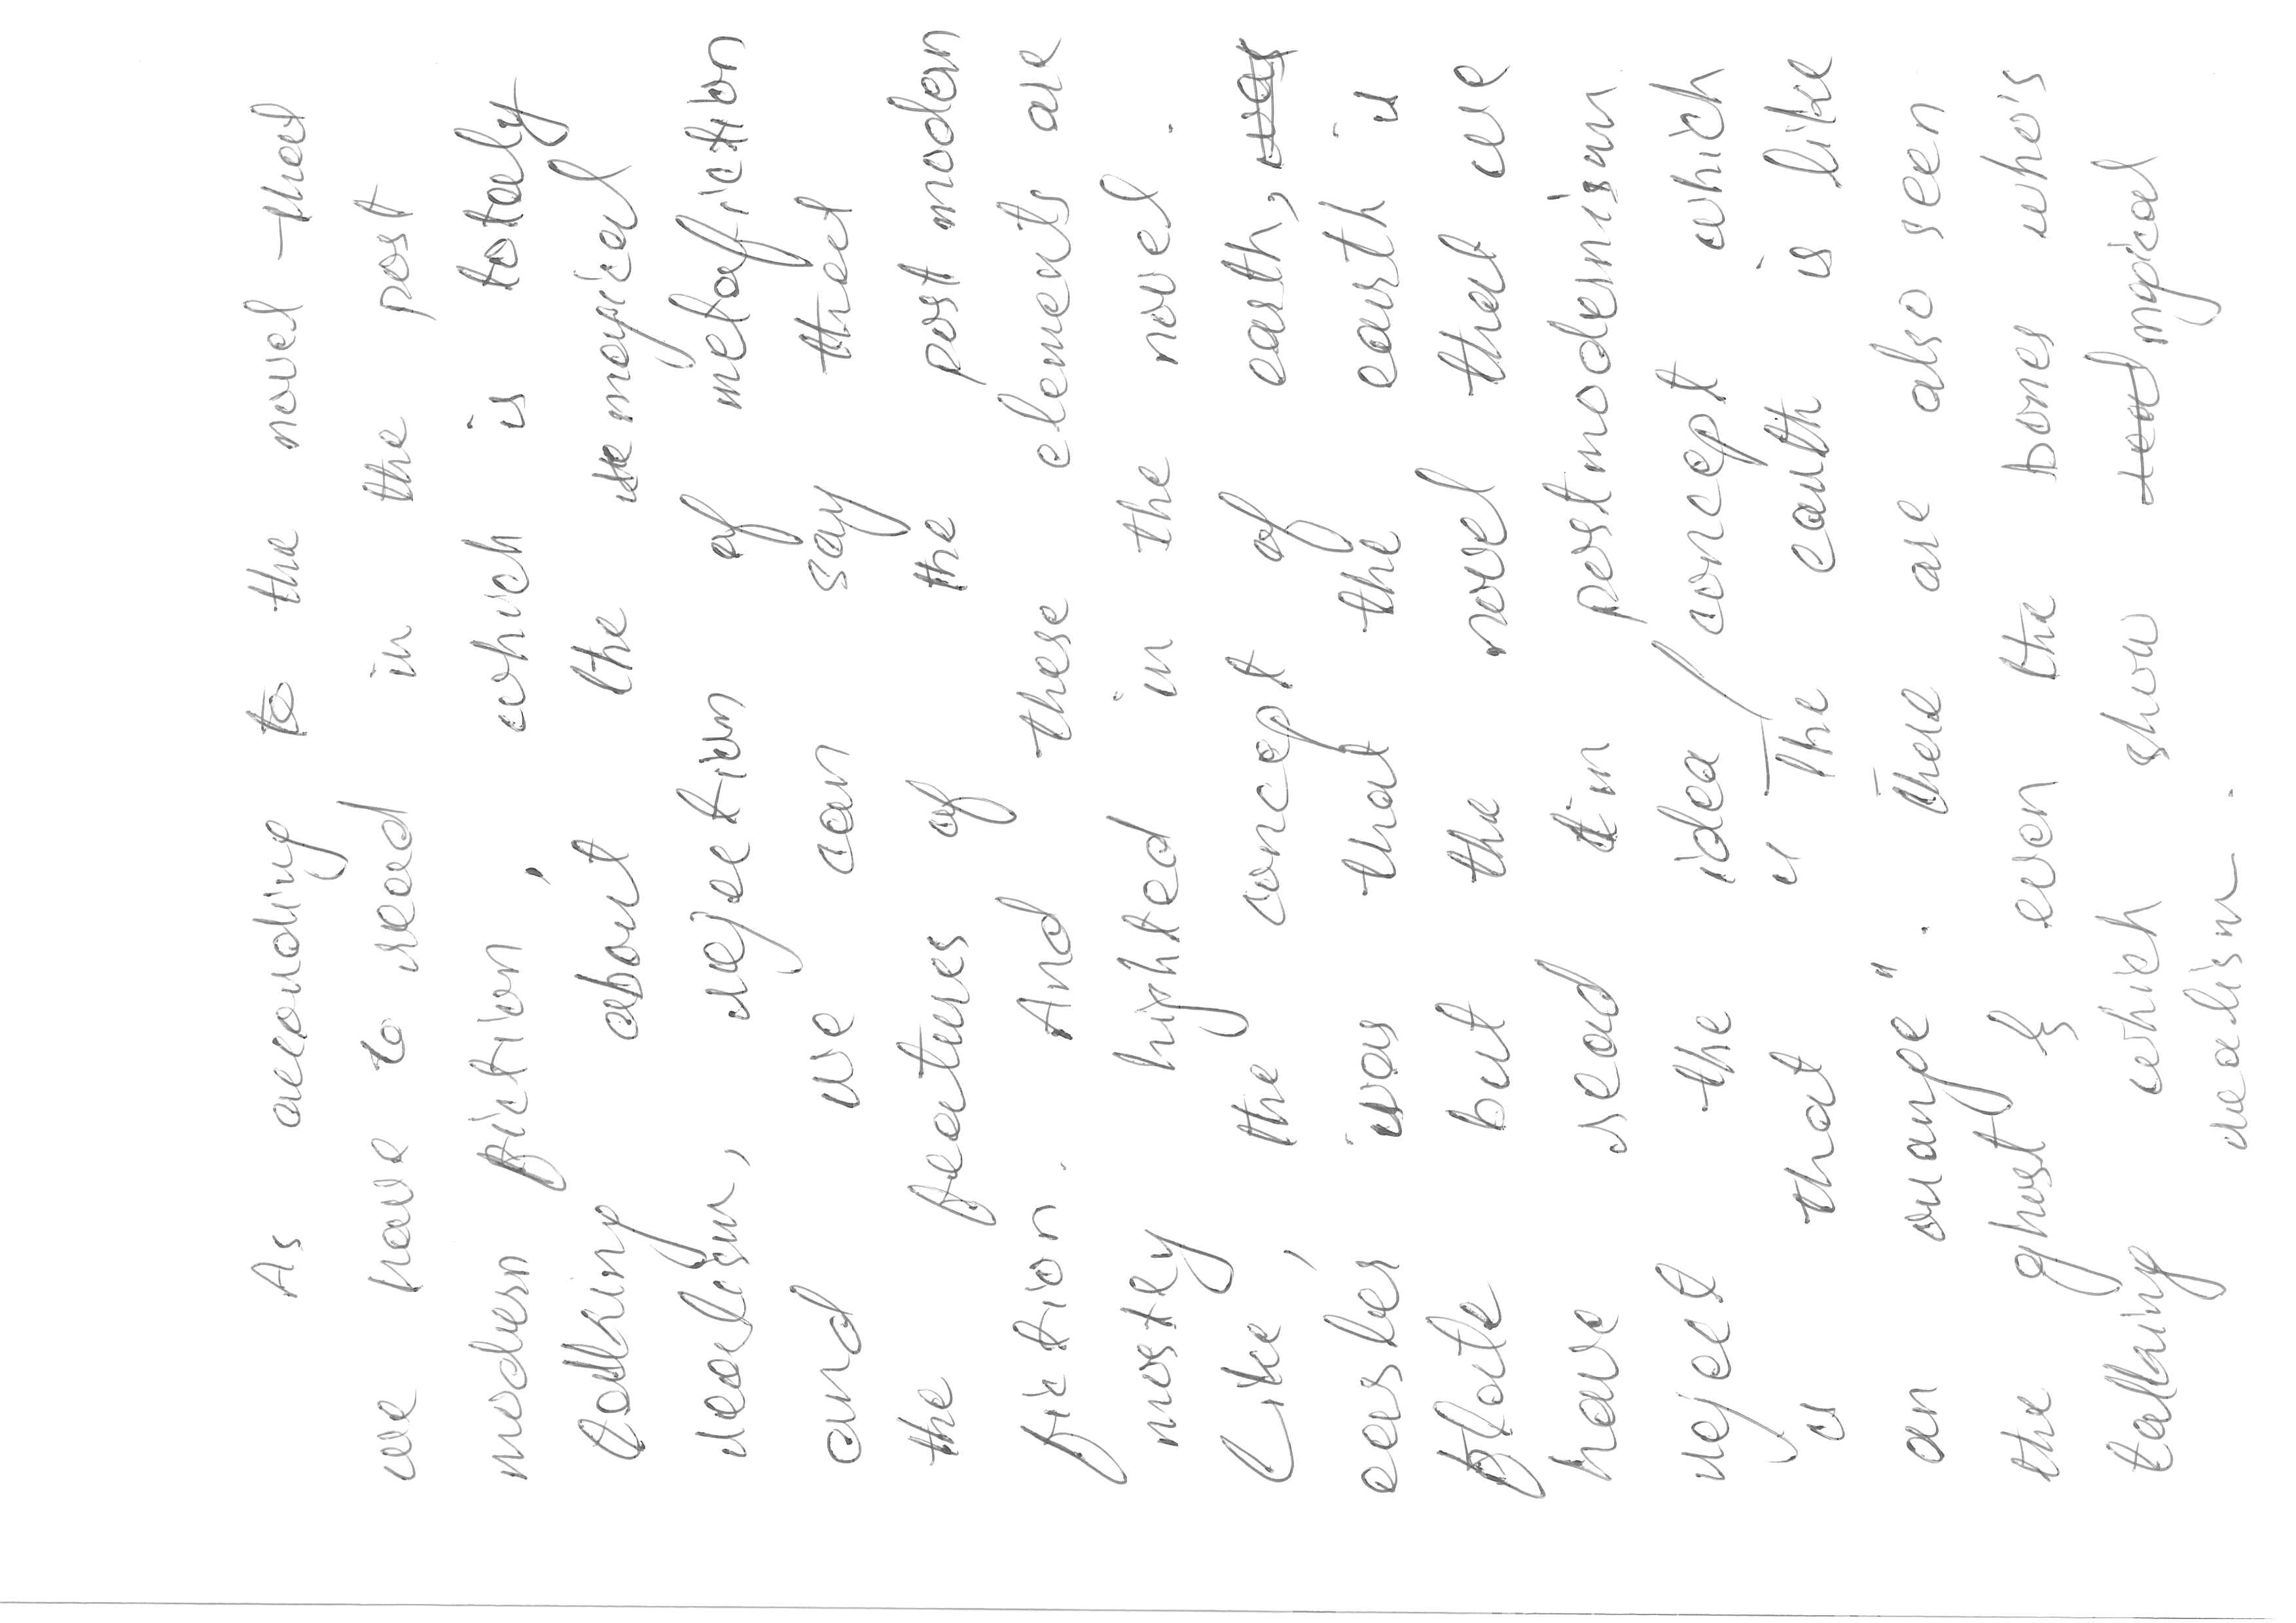 As according to the novel that
we have to read in the post
modern fiction, which is totaly
talking about the magical
realism, rejection of metafiction
and we can say that
the features of the post modern
fiction. And these elements are
mostly highted in the novel.
Like, the concept of earth, was
easler was that the earth is
flate but the novel that we
have read in postmodernism
reject the idea / concept which
is that "The earth is like
an orange". There are also seen
the ghost & even the bones who's
talking which show real mgical
realism.